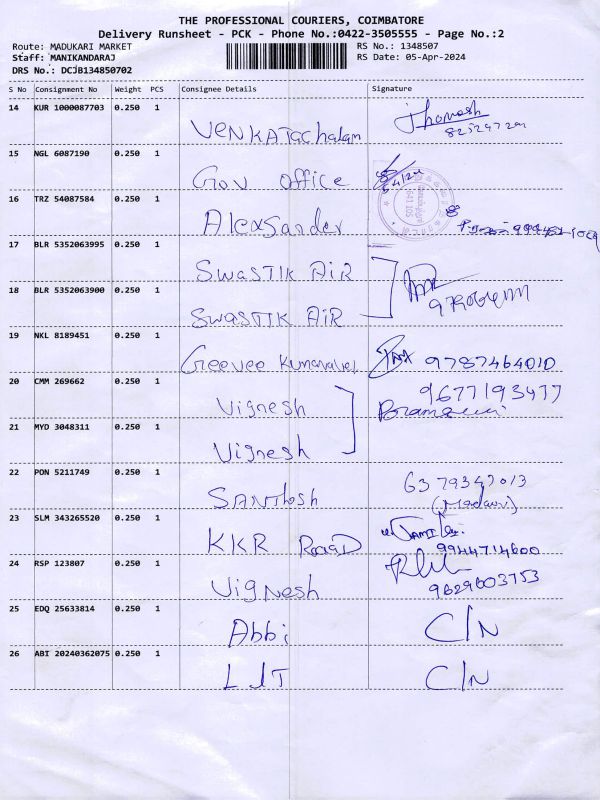 THE PROFESSIONAL COURIERS, COIMBATORE
Delivery Runsheet - PCK - Phone No.:0422-3505555 - Page No.:2
Route: MADUKARI MARKET
RS No.: 1348507
Staff: MANIKANDARAJ
RS Date: 05-Apr-2024
DRS No.: DCJB134850702
S No Consignment No Weight PCS Consignee Details Signature
14 KUR 1000087703 0.250 1
Venkatachalam Thomash
15 NGL 6087190 0.250 1
Gov office
16 TRZ 54087584 0.250 1
Alexsander
17 BLR 5352063995 0.250 1
Swastik Air
18 BLR 5352063900 0.250 1
Swastik Air
19 NKL 8189451 0.250 1
9787464010
20 CMM 269662 0.250 1
Vignesh 9677193477
21 MYD 3048311 0.250 1
Vignesh
22 PON 5211749 0.250 1
Santhosh 6379347013
23 SLM 343265520 0.250 1
KKR Road 9944714600
24 RSP 123807 0.250 1
Vignesh 9629603753
25 EDQ 25633814 0.250 1
Abbi C/N
26 ABI 20240362075 0.250 1
LJT C/N